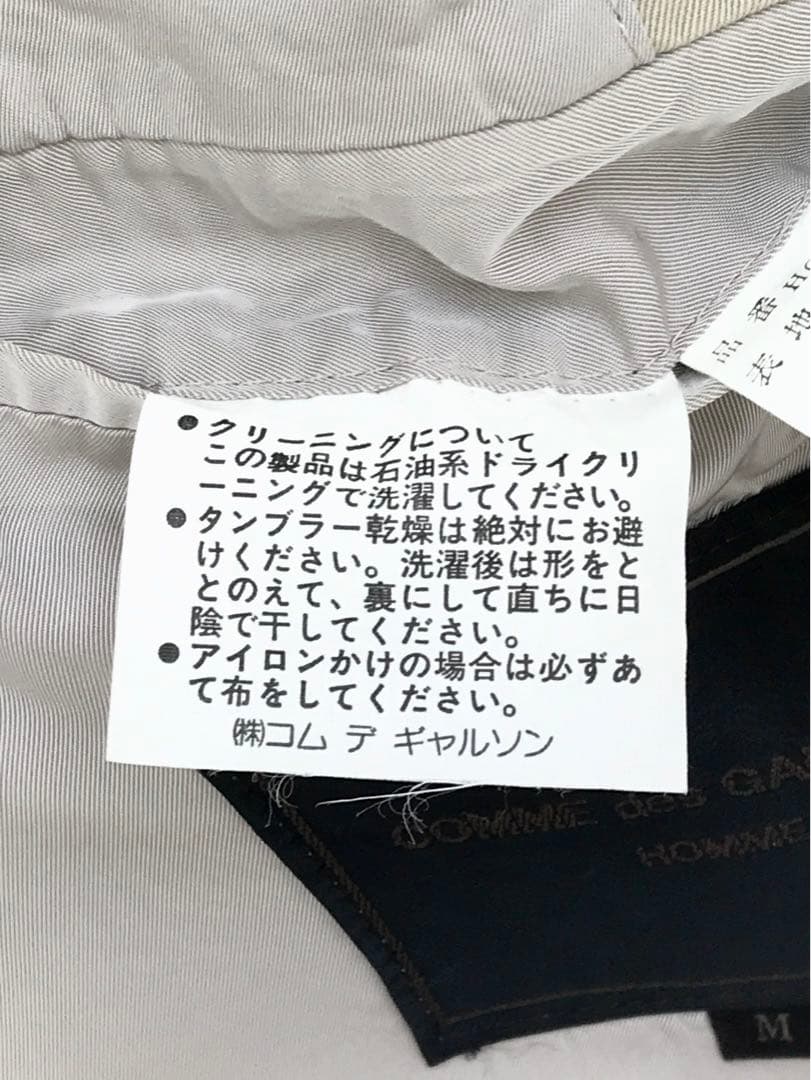 品番 H
表地
●クリーニングについて
この製品は石油系ドライクリ
ーニングで洗濯してください。
●タンブラー乾燥は絶対にお避
けください。洗濯後は形をと
とのえて、裏にして直ちに日
陰で干してください。
●アイロンかけの場合は必ずあ
て布をしてください。
㈱コム デ ギャルソン
COMME des GA
HOMME
M